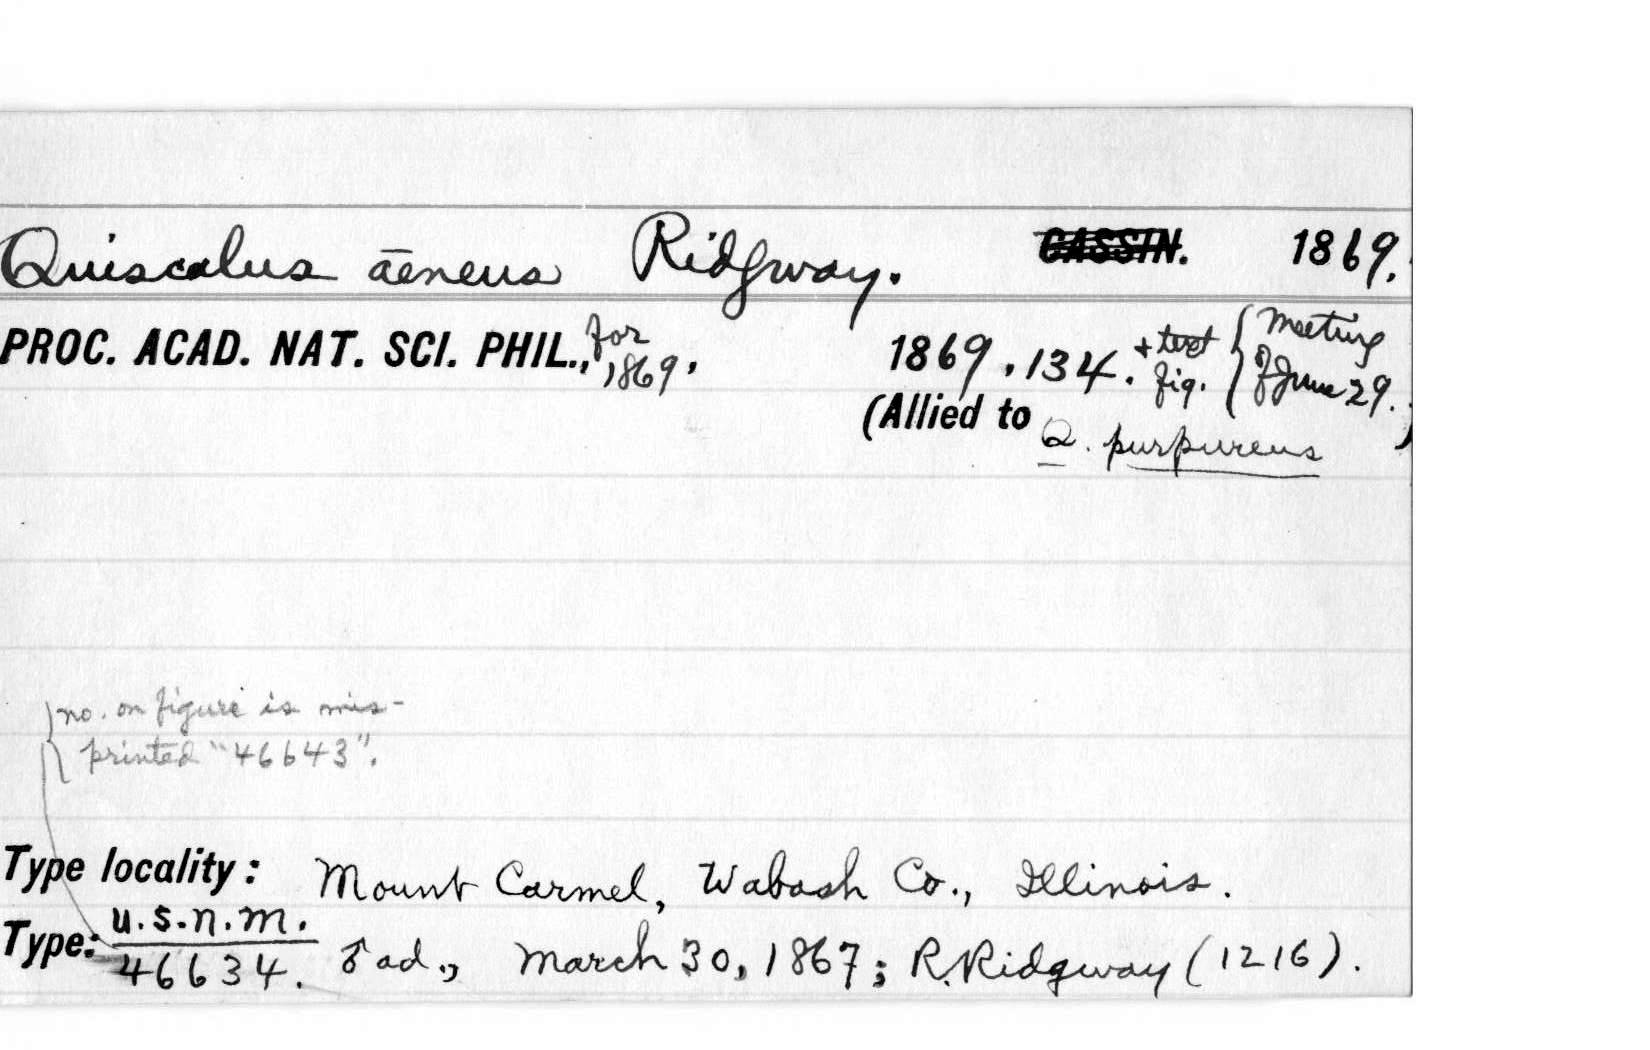 Quiscalus aeneus Ridgway. CASSIN. 1869.
PROC. ACAD. NAT. SCI. PHIL., for 1869, 1869, 134. + text fig. {Meeting of June 29.
(Allied to Q. purpureus)
{no. on figure is mis-
printed "46643".
Type locality: Mount Carmel, Wabash Co., Illinois.
Type: U.S.N.M. 46634. ♂ ad., March 30, 1867; R. Ridgway (1216).